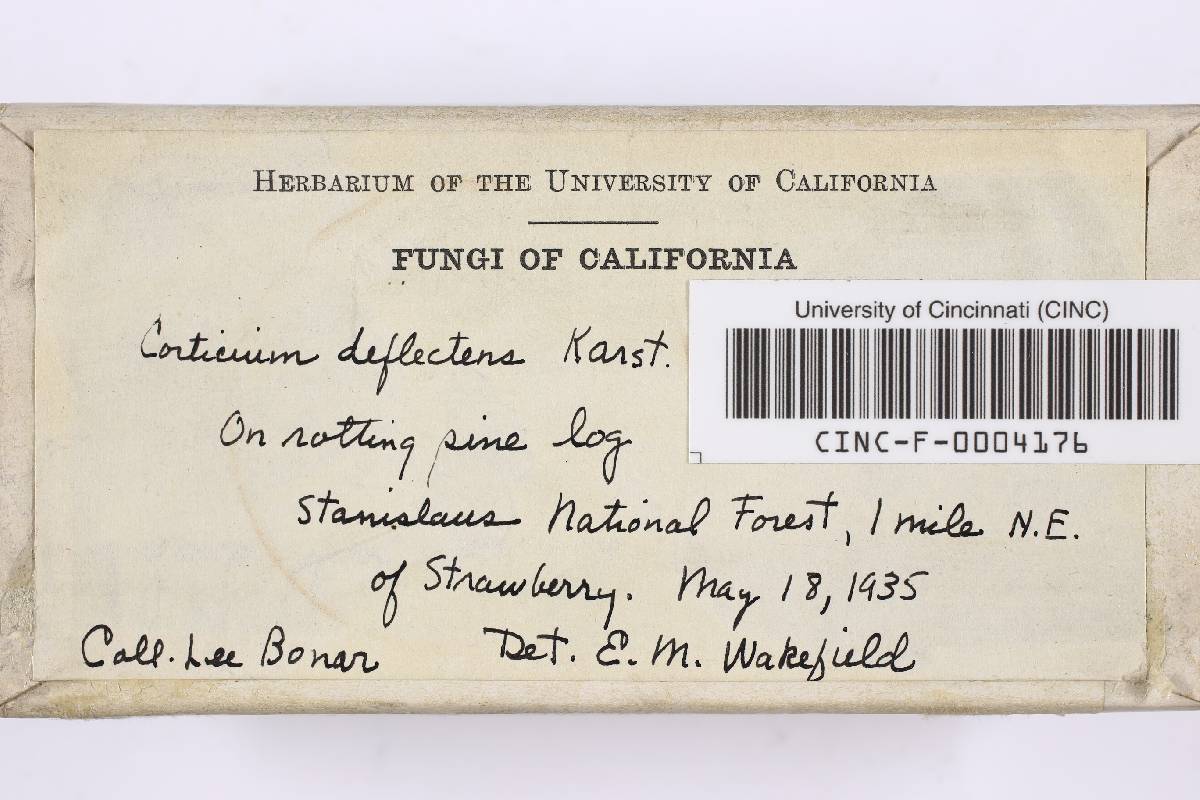 HERBARIUM OF THE UNIVERSITY OF CALIFORNIA
FUNGI OF CALIFORNIA
University of Cincinnati (CINC)
CINC-F-0004176
Corticium deflectens Karst.
On rotting pine log
Stanislaus National Forest, 1 mile N.E.
of Strawberry. May 18, 1935
Coll. Lee Bonar Det. E. M. Wakefield